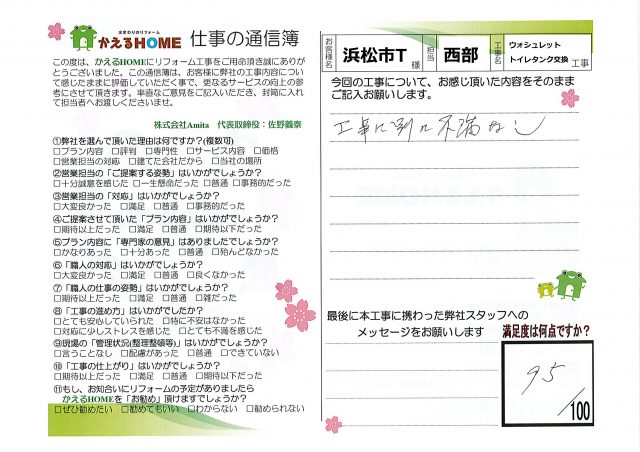 水まわりのリフォーム
かえるHOME 仕事の通信簿
この度は、かえるHOMEにリフォーム工事をご用命頂き誠にありが
とうございました。この通信簿は、お客様に弊社の工事内容につい
て感じたままに評価していただく事で、更なるサービスの向上の参
考にさせて頂きます。率直なご意見をご記入いただき、封筒に入れ
て担当者へお渡しくださいませ。
株式会社Amita 代表取締役:佐野義泰
①弊社を選んで頂いた理由は何ですか?(複数可)
□プラン内容 □評判 □専門性 □サービス内容 □価格
□営業担当の対応 □建てた会社だから □当社の場所
②営業担当の「ご提案する姿勢」はいかがでしょうか?
□十分誠意を感じた □一生懸命だった □普通 □事務的だった
③営業担当の「対応」はいかがでしょうか?
□大変良かった □満足 □普通 □事務的だった
④ご提案させて頂いた「プラン内容」はいかがでしょうか?
□期待以上だった □満足 □普通 □期待以下だった
⑤プラン内容に「専門家の意見」はありましたでしょうか?
□かなりあった □十分あった □普通 □殆んどなかった
⑥「職人の対応」はいかがでしょうか?
□大変良かった □満足 □普通 □良くなかった
⑦「職人の仕事の姿勢」はいかがでしょうか?
□期待以上だった □満足 □普通 □雑だった
⑧「工事の進め方」はいかがでしたか?
□とても安心していられた □特に不安はなかった
□対応に少しストレスを感じた □とても不満を感じた
⑨現場の「管理状況(整理整頓等)」はいかがでしょうか?
□言うことなし □配慮があった □普通 □できていない
⑩「工事の仕上がり」はいかがでしょうか?
□期待以上だった □満足 □普通 □期待以下だった
⑪もし、お知合いにリフォームの予定がありましたら
かえるHOMEを「お勧め」頂けますでしょうか?
□ぜひ勧めたい □勧めてもいい □わからない □勧められない
お客様名 浜松市T 様 担当 西部 工事名 ウォシュレット
トイレタンク交換 工事
今回の工事について、お感じ頂いた内容をそのまま
ご記入お願いします。
工事に別に不満なし
最後に本工事に携わった弊社スタッフへの
メッセージをお願いします
満足度は何点ですか?
95
/100